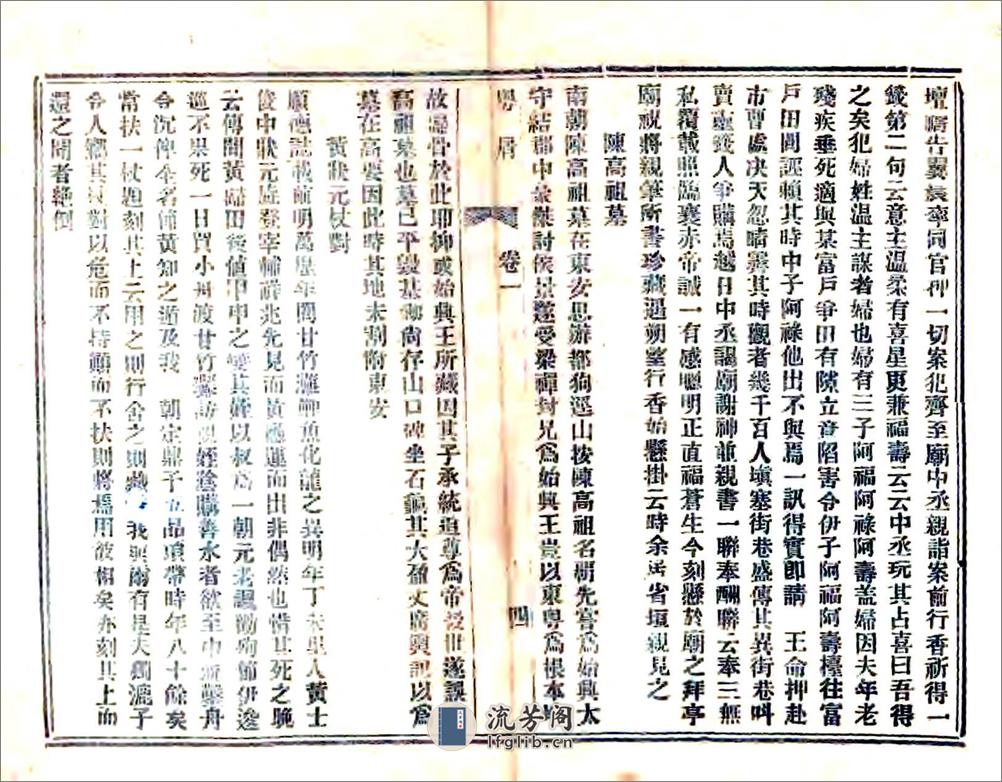 壇牆告翼長率同官押一切案犯齊至廟中丞親詣案前行香祈得一
籤第二句云意主溫柔有喜星更兼福壽云云中丞玩其占喜曰吾得
之矣犯婦姓溫主謀者婦也婦有三子阿福阿祿阿壽蓋婦因夫年老
殘疾垂死適與某富戶爭田有隙立意陷害令伊子阿福阿壽擡往富
戶田間誣賴其時中子阿祿他出不與焉一訊得實即請 王命押赴
市曹處决天忽晴霽其時觀者幾千百人塡塞街巷盛傳其異街巷叫
賣靈籤人爭購焉越日中丞謁廟謝神並親書一聯奉酬聯云奉三無
私覆載照臨襄赤帝誠一有感聰明正直福蒼生今刻懸於廟之拜亭
廟祝將親筆所書珍藏遇朔望行香始懸掛云時余在省垣親見之
陳高祖墓
南朝陳高祖墓在東安思游都狗逕山按陳高祖名覇先嘗爲始興太
守結郡中豪傑討侯景遂受梁禪封兄爲始興王豈以東粤爲根本
故歸骨於此耶抑或始興王所藏因其子承統追尊爲帝後世遂誤
高祖墓也墓已平毀墓物尙存山口碑坐石龜其大盈丈廣輿記以爲
墓在高要因此時其地未割附東安
黃狀元杖對
順德誌載前明萬歷年間甘竹灘鯉魚化龍之異明年丁未里人黃士
俊中狀元庭登宰輔祥兆先見而黃應運而出非偶然也惜其死之晚
云傳聞黃歸田後値甲申之變其姪以叔爲一朝元老諷勸殉節伊逡
巡不果死一日買小舟渡甘竹灘訪姪爲購善水者欲至中流鑿舟
令沉伸全者節黃知之遁及我 朝定鼎予五品頂帶時年八十餘矣
常扶一杖題刻其上云用之則行舍之則藏惟我與爾有是夫獨漉子
令人續其對以危而不持顚而不扶則將焉用彼相矣亦刻其上而
還之聞者絶倒
粤屑
卷一
四
流芳阁
lfglib.cn